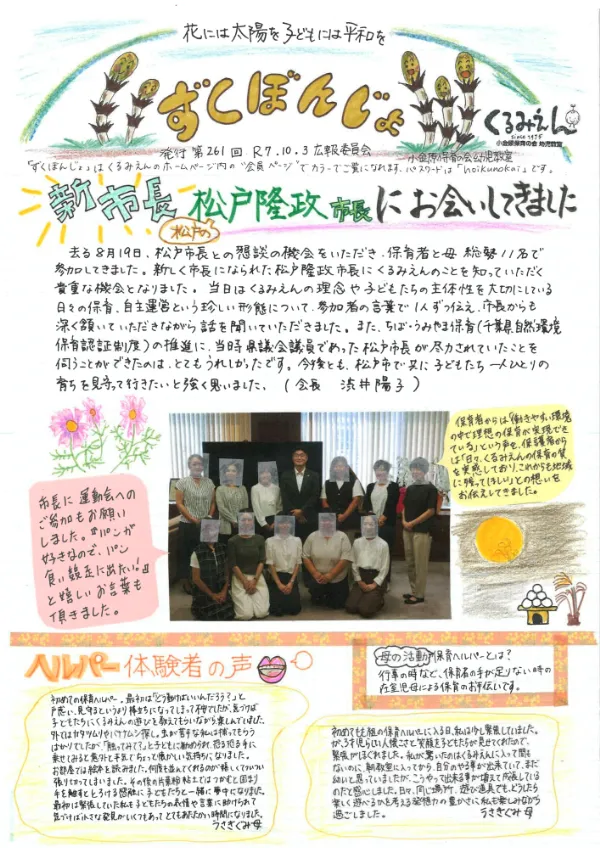 花には太陽を子どもには平和を
ずくぼんじょ
くるみえん
since 1975
小金原保育の会 幼児教室
発行 第261回 R7.10.3 広報委員会
小金原保育の会幼児教室
「ずくぼんじょ」はくるみえんのホームページ内の"会員ページ"でカラーでご覧になれます。パスワードは「hoikunokai」です。
新市長 松戸隆政市長にお会いしてきました
松戸の
去る8月19日、松戸市長との懇談の機会をいただき、保育者と母 総勢11名で
参加してきました。新しく市長になられた松戸隆政市長にくるみえんのことを知っていただく
貴重な機会となりました。当日はくるみえんの理念や子どもたちの主体性を大切にしている
日々の保育、自主運営という珍しい形態について、参加者の言葉で1人ずつ伝え、市長からも
深く頷いていただきながら話を聞いていただきました。また、ちば・うみやま保育(千葉県自然環境
保育認証制度)の推進に、当時県議会議員であった松戸市長が尽力されていたことを
伺うことができたのは、とてもうれしかったです。今後とも、松戸市で共に子どもたち一人ひとりの
育ちを見守って行きたいと強く思いました。(会長 浜井陽子)
保育者からは「働きやすい環境
の中で理想の保育が実現でき
ている」という声を、保護者から
は「日々、くるみえんの保育の質
を実感しており、これからも地域
に残ってほしい」との想いを
お伝えしてきました。
市長に運動会への
ご参加もお願い
しました。『パンが
好きなので、パン
食い競走に出たい!』
と嬉しいお言葉も
頂きました。
ヘルパー体験者の声
母の活動『保育ヘルパー』とは?
行事の時など、保育者の手が足りない時の
在室児母による保育のお手伝いです。
初めての保育ヘルパー。最初は「どう動けばいいんだろう?」と
戸惑い、見守るというより棒立ちになってしまって不安でしたが、気づけば
子どもたちにくるみえんの遊びを教えてもらいながら楽しんでいました。
外ではカタツムリやバッタ、ムシ探し。虫が苦手な私は捕ってもらう
ばかりでしたが、「触ってみて」と子どもに勧められ、恐る恐る手に
乗せてみると意外と平気でちょっと懐かしい気持ちになりました。
お部屋では絵本を読みました。何度も並んでくれるのが嬉しくてついつい
張りきってしまいました。その後の
手を動かすととろける感触に子どもたちと一緒に夢中になりました。
最初は緊張していた私も子どもたちの表情や言葉に助けられて
気づけば小さな発見がいくつもあってとてもあたたかい時間になりました。
うさぎぐみ母
初めて
緊張がほぐれました。
ないのに、
日々、同じ場所、遊び道具でも、どうしたら
楽しく遊べるかを考える発想力の豊かさに私も楽しみながら
過ごしました。
うさぎぐみ母